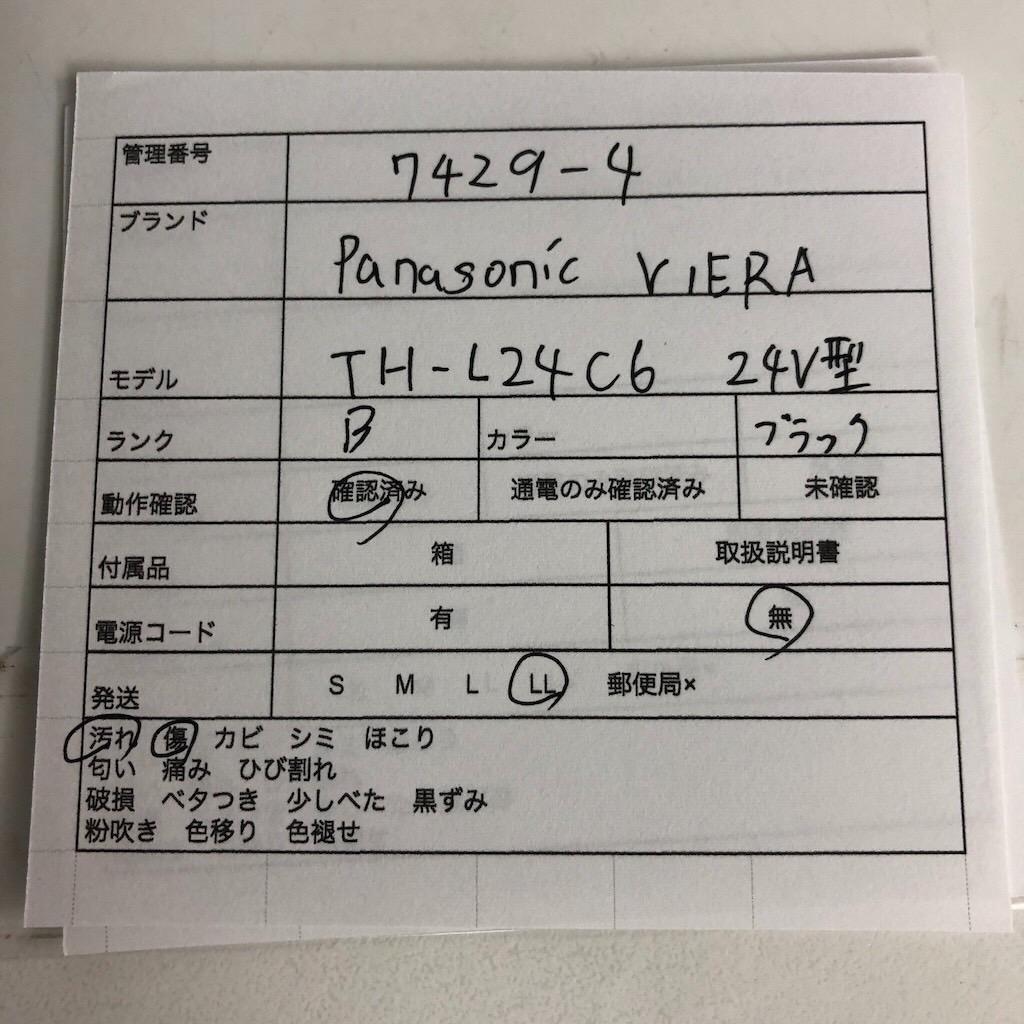 管理番号 7429-4
ブランド Panasonic VIERA
モデル TH-L24C6 24V型
ランク B カラー ブラック
動作確認 確認済み 通電のみ確認済み 未確認
付属品 箱 取扱説明書
電源コード 有 無
発送 S M L LL 郵便局×
汚れ 傷 カビ シミ ほこり
匂い 痛み ひび割れ
破損 ベタつき 少しべた 黒ずみ
粉吹き 色移り 色褪せ